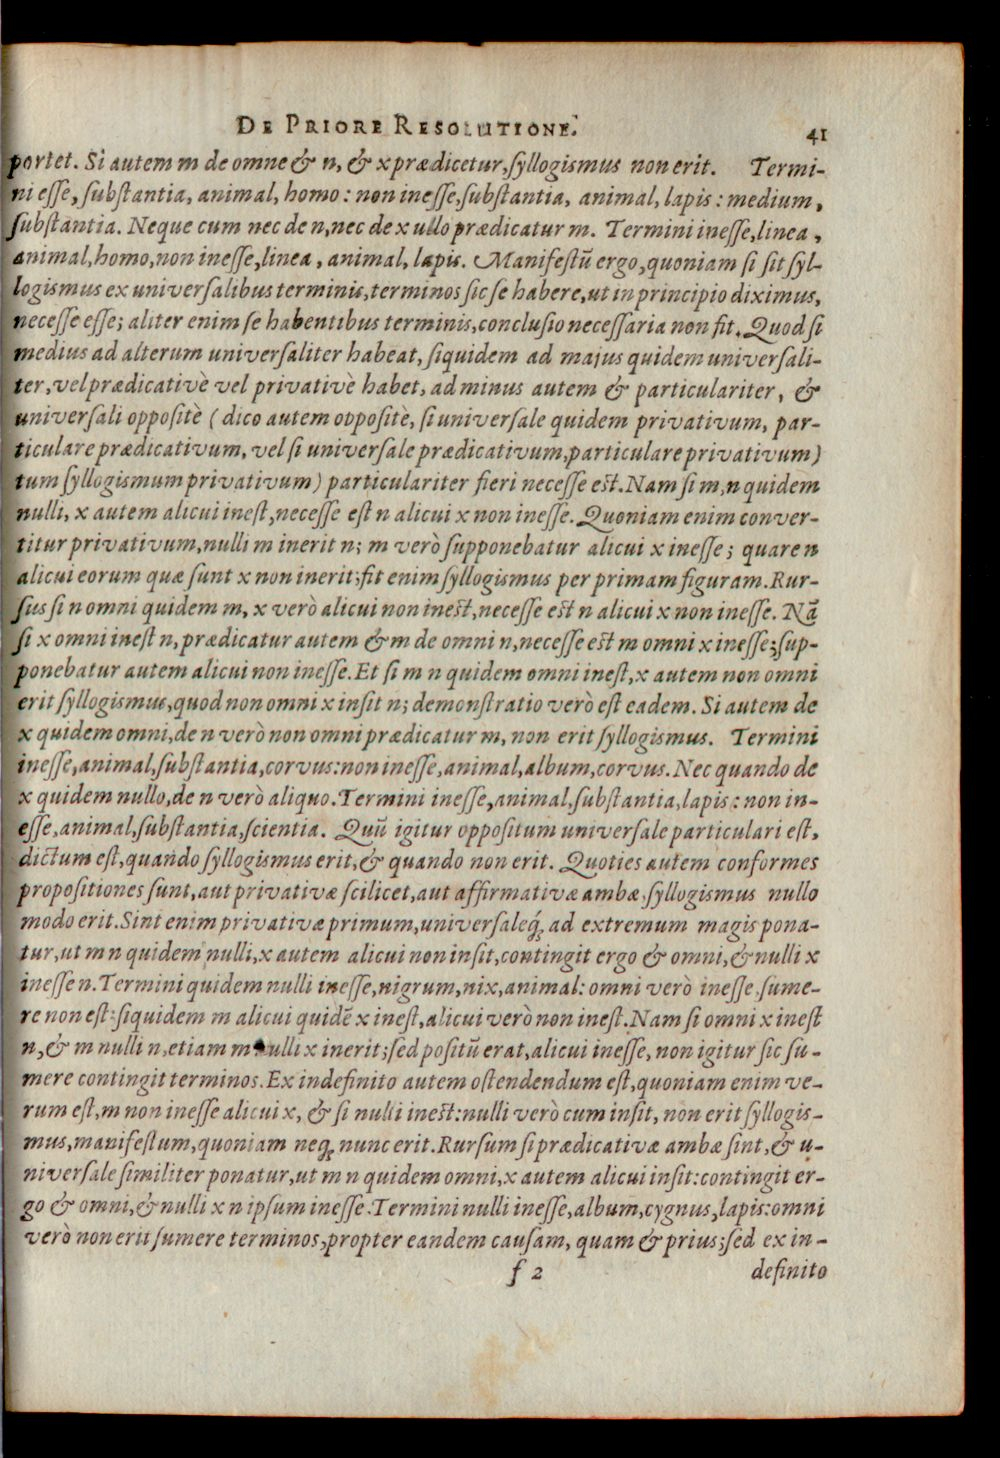 DE PRIORE RESOLUTIONE. 41
portet. Si autem m de omne & n, & x prædicetur, ſyllogismus non erit. Termi-
ni eſſe, ſubſtantia, animal, homo: non ineſſe, ſubſtantia, animal, lapis: medium,
ſubſtantia. Neque cum nec de n, nec de x ullo prædicatur m. Termini ineſſe, linea,
animal, homo, non ineſſe, linea, animal, lapis. Manifeſtū ergo, quoniam ſi ſit ſyl-
logismus ex univerſalibus terminis, terminos ſic ſe habere, ut in principio diximus,
neceſſe eſſe; aliter enim ſe habentibus terminis, concluſio neceſſaria non fit. Quod ſi
medius ad alterum univerſaliter habeat, ſiquidem ad majus quidem univerſali-
ter, vel prædicativè vel privativè habet, ad minus autem & particulariter, &
univerſali oppoſitè (dico autem oppoſitè, ſi univerſale quidem privativum, par-
ticulare prædicativum, vel ſi univerſale prædicativum, particulare privativum)
tum ſyllogismum privativum) particulariter fieri neceſſe eſt. Nam ſi m, n quidem
nulli, x autem alicui ineſt, neceſſe eſt n alicui x non ineſſe. Quoniam enim conver-
titur privativum, nulli m inerit n; m verò ſupponebatur alicui x ineſſe; quare n
alicui eorum quæ ſunt x non inerit; fit enim ſyllogismus per primam figuram. Rur-
ſus ſi n omni quidem m, x verò alicui non ineſt, neceſſe eſt n alicui x non ineſſe. Nā
ſi x omni ineſt n, prædicatur autem & m de omni n, neceſſe eſt m omni x ineſſe; ſup-
ponebatur autem alicui non ineſſe. Et ſi m n quidem omni ineſt, x autem non omni
erit ſyllogismus, quod non omni x inſit n; demonſtratio verò eſt eadem. Si autem de
x quidem omni, de n verò non omni prædicatur m, non erit ſyllogismus. Termini
ineſſe, animal, ſubſtantia, corvus: non ineſſe, animal, album, corvus. Nec quando de
x quidem nullo, de n verò aliquo. Termini ineſſe, animal, ſubſtantia, lapis: non in-
eſſe, animal, ſubſtantia, ſcientia. Quū igitur oppoſitum univerſale particulari eſt,
dictum eſt, quando ſyllogismus erit, & quando non erit. Quoties autem conformes
propoſitiones ſunt, aut privativæ ſcilicet, aut affirmativæ ambæ, ſyllogismus nullo
modo erit. Sint enim privativæ primum, univerſaleq́; ad extremum magis pona-
tur, ut m n quidem nulli, x autem alicui non inſit, contingit ergo & omni, & nulli x
ineſſe n. Termini quidem nulli ineſſe, nigrum, nix, animal: omni verò ineſſe, ſume-
re non eſt: ſiquidem m alicui quidē x ineſt, alicui verò non ineſt. Nam ſi omni x ineſt
n, & m nulli n, etiam m nulli x inerit; ſed poſitū erat, alicui ineſſe, non igitur ſic ſu-
mere contingit terminos. Ex indefinito autem oſtendendum eſt, quoniam enim ve-
rum eſt, m non ineſſe alicui x, & ſi nulli ineſt: nulli verò cum inſit, non erit ſyllogis-
mus, manifeſtum, quoniam neq; nunc erit. Rurſum ſi prædicativæ ambæ ſint, & u-
niverſale ſimiliter ponatur, ut m n quidem omni, x autem alicui inſit: contingit er-
go & omni, & nulli x n ipſum ineſſe. Termini nulli ineſſe, album, cygnus, lapis: omni
verò non erit ſumere terminos, propter eandem cauſam, quam & prius; ſed ex in-
f 2 definito